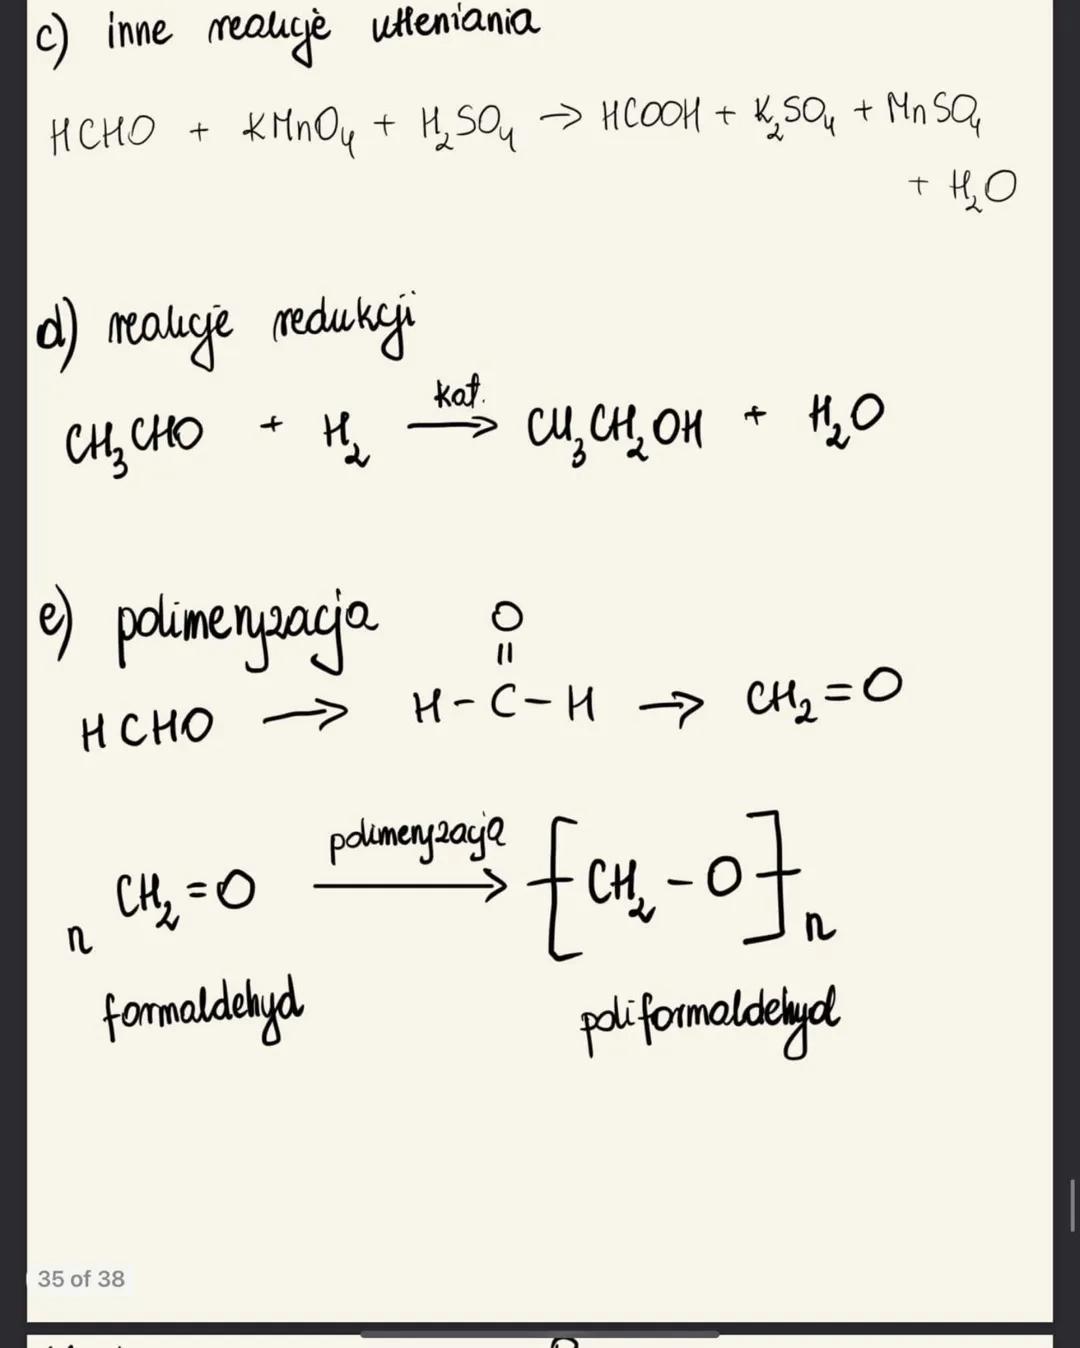 c) inne reakcje utleniania
HCHO + KMnO₄ + H₂SO₄ → HCOOH + K₂SO₄ + MnSO₄
+ H₂O
d) reakcje redukcji
kat.
CH₃CHO + H₂ → CH₃CH₂OH + H₂O
e) polimeryzacja
O
=
HCHO → H-C-H → CH₂=O
polimeryzacja
n CH₂=O → [CH₂-O]n
formaldehyd poliformaldehyd
35 of 38